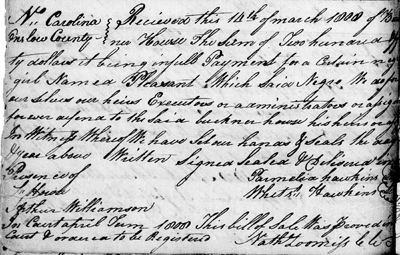 No Carolina } Received this 14th of march 1808 of
Onslow County } ner House The Sum of Two hundred
ty dollars it being in full Payment for a Certain
girl Named Pleasant Which Said Negro We do for
our Selves our heirs Executors or administrators or
forever defend to the Said Buckner house his heirs
In Witness Whereof We have Set our hands & Seals the day
& year above Written Signed Sealed & Delivered
Presence of Parmelia Hawkins
House Whitd Hawkins
Arthur Williamson
Court april Term 1808 This bill of Sale Was Proved in
Court & ordered to be Registered Nath Loomis